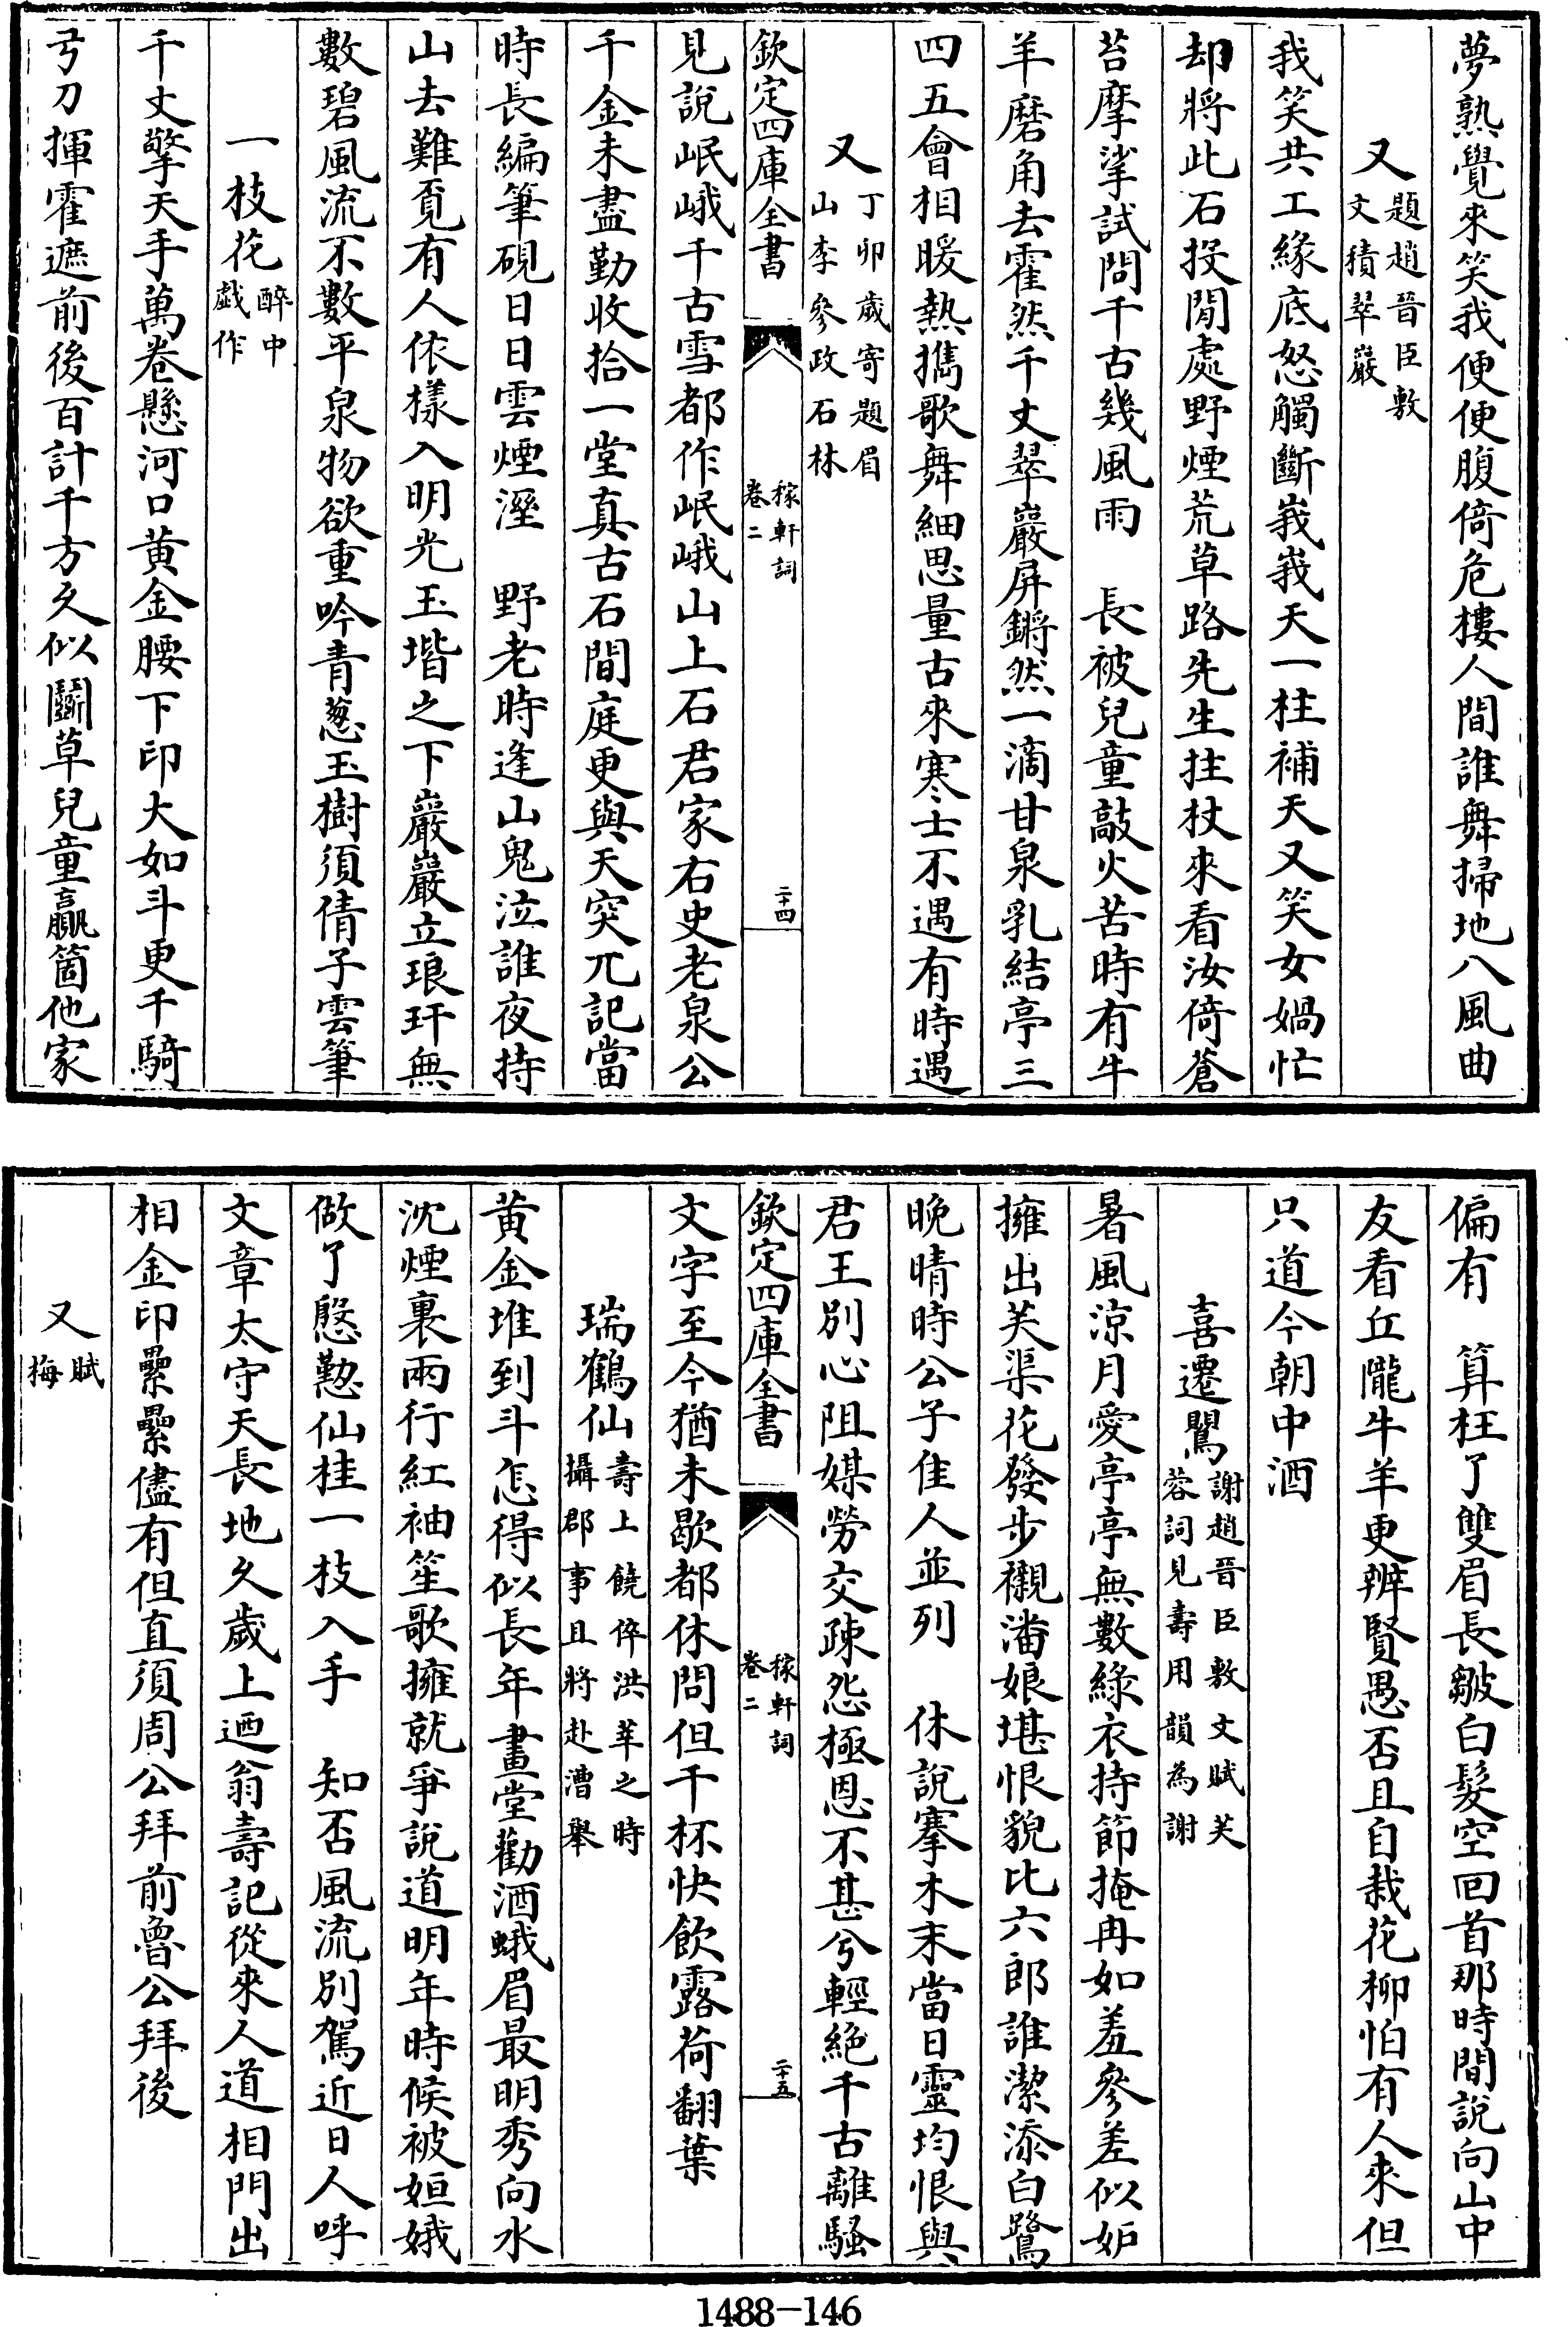 夢熟覺來笑我便便腹倚危樓人間誰舞掃地八風曲
又題趙晉臣敷
文積翠巖
我笑共工緣底怒觸斷峩峩天一柱補天又笑女媧忙
却將此石投閒處野煙荒草路先生拄杖來看汝倚蒼
苔摩挲試問千古幾風雨　長被兒童敲火苦時有牛
羊磨角去霍然千丈翠巖屏鏘然一滴甘泉乳結亭三
四五會相暖熱攜歌舞細思量古來寒士不遇有時遇
又丁卯歲寄題眉
山李參政石林
欽定四庫全書
稼軒詞
卷二
二十四
見說岷峨千古雪都作岷峨山上石君家右史老泉公
千金未盡勤收拾一堂真古石間庭更與天突兀記當
時長編筆硯日日雲煙溼　野老時逢山鬼泣誰夜持
山去難覓有人依樣入明光玉堦之下巖巖立琅玕無
數碧風流不數平泉物欲重吟青葱玉樹須倩子雲筆
一枝花醉中
戯作
千丈擎天手萬卷懸河口黃金腰下印大如斗更千騎
弓刀揮霍遮前後百計千方久似鬭草兒童贏箇他家
偏有　算枉了雙眉長皺白髮空回首那時間說向山中
友看丘隴牛羊更辨賢愚否且自栽花柳怕有人來但
只道今朝中酒
喜遷鶯謝趙晉臣敷文賦芙
蓉詞見壽用韻為謝
暑風涼月愛亭亭無數綠衣持節掩冉如羞參差似妒
擁出芙渠花發步襯潘娘堪恨貌比六郎誰潔添白鷺
晚晴時公子佳人並列　休說搴木末當日靈均恨與
君王別心阻媒勞交疎怨極恩不甚兮輕絶千古離騷
欽定四庫全書
稼軒詞
卷二
二十五
文字至今猶未歇都休問但千杯快飲露荷翻葉
瑞鶴仙壽上饒倅洪莘之時
攝郡事且將赴漕舉
黃金堆到斗怎得似長年畫堂勸酒蛾眉最明秀向水
沈煙裏兩行紅袖笙歌擁就爭說道明年時候被姮娥
做了慇懃仙桂一枝入手　知否風流別駕近日人呼
文章太守天長地久歲上迺翁壽記從來人道相門出
相金印纍纍儘有但直須周公拜前魯公拜後
又賦
梅
1488-146